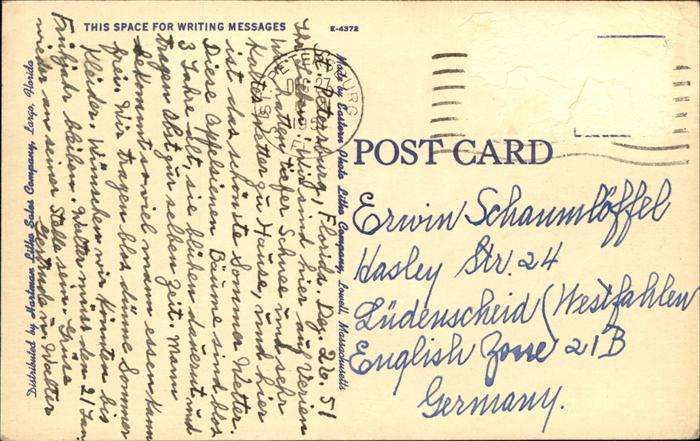 THIS SPACE FOR WRITING MESSAGES
E-4372
St. Petersburg, Florida. Dez. 26. 51
Ihr Lieben! Wir sind hier auf Verien
Wir hatten tiefer Schnee und sehr
kaltes Wetter zu Hause, und hier
ist das schönste Sommer Wetter.
Diese Appelsienen Bäume sind blos
3 Jahre alt, sie blühen dauernt und
tragen Obst zur selben Zeit. Mann
bekommt soviel mann essen kann
frei. Wir tragen blos dünne Sommer
Kleider. Wünschen wir könnten bis
Frühjahr bleiben. Walter muss den 21 Jan.
wieder an seiner Stelle sein. Grüse
Walter
Made by Eastern Photo Litho Company, Lowell, Massachusetts
Distributed by Hartman Litho Sales Company, Largo, Florida
POST CARD
Erwin Schaumlöffel
Hasley Str. 24
Lüdenscheid (Westfahlen
English Zone 21B
Germany.